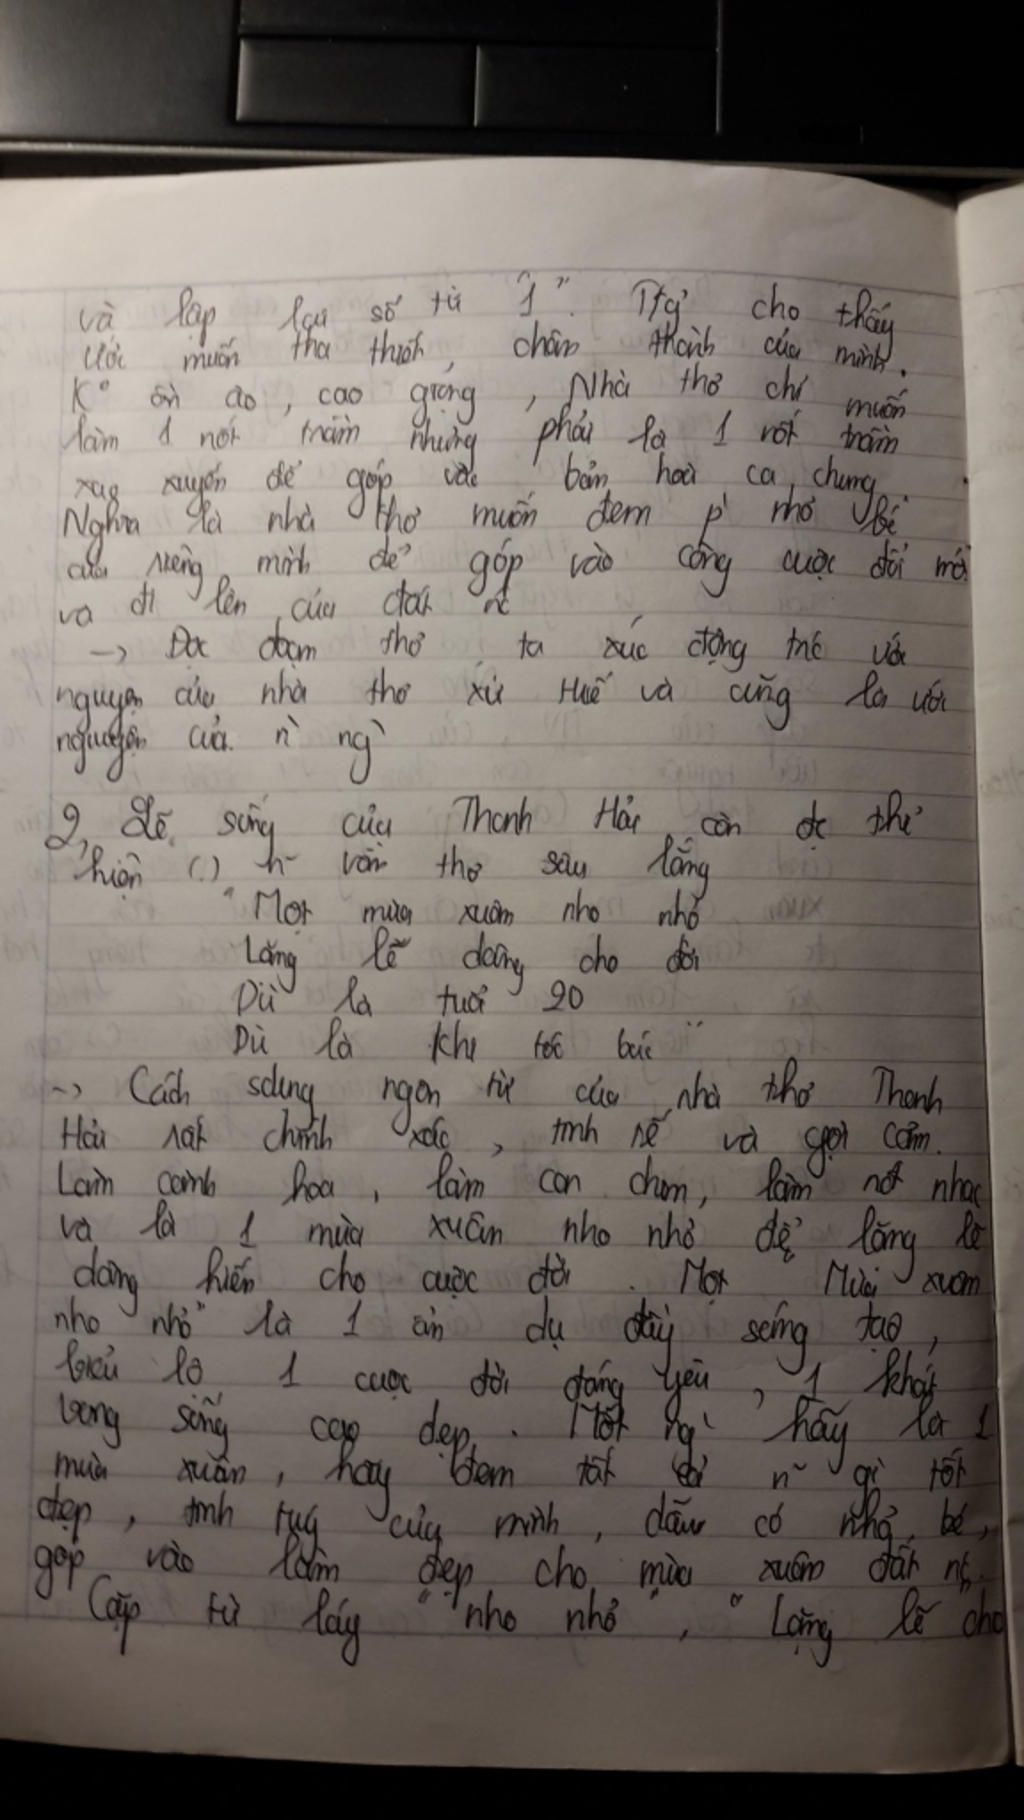 và lặp lại số từ "1". T/g' cho thấy
ước muốn tha thiết, chân thành của mình.
K° ồn ào, cao giọng, Nhà thơ chỉ muốn
làm 1 nốt trầm nhưng phải là 1 nốt trầm
xao xuyến để góp vào bản hoà ca chung.
Nghĩa là nhà thơ muốn đem p' nhỏ bé
của riêng mình để góp vào công cuộc đổi mới
và đi lên của đất nc
-> Đọc đoạn thơ ta xúc động trc ước
nguyện của nhà thơ xứ Huế và cũng là ước
nguyện của n` ng`
2, Lẽ sống của Thanh Hải còn đc thể
hiện (.) n~ vần thơ sâu lắng
"Một mùa xuân nho nhỏ
Lặng lẽ dâng cho đời
Dù là tuổi 20
Dù là khi tóc bạc"
-> Cách sdụng ngôn từ của nhà thơ Thanh
Hải rất chính xác, tinh tế và gợi cảm.
Làm cành hoa, làm con chim, làm nốt nhạc
và là 1 mùa xuân nho nhỏ để lặng lẽ
dâng hiến cho cuộc đời. Một Mùa xuân
nho nhỏ" là 1 ẩn dụ đầy sáng tạo,
biểu lộ 1 cuộc đời đáng yêu, 1 khát
vọng sống cao đẹp. Mỗi ng` hãy là 1
mùa xuân, hãy đem tất cả n~ gì tốt
đẹp, tinh tuý của mình, dẫu có nhỏ bé,
góp vào làm đẹp cho mùa xuân đất nc.
Cặp từ láy "nho nhỏ", "Lặng lẽ cho